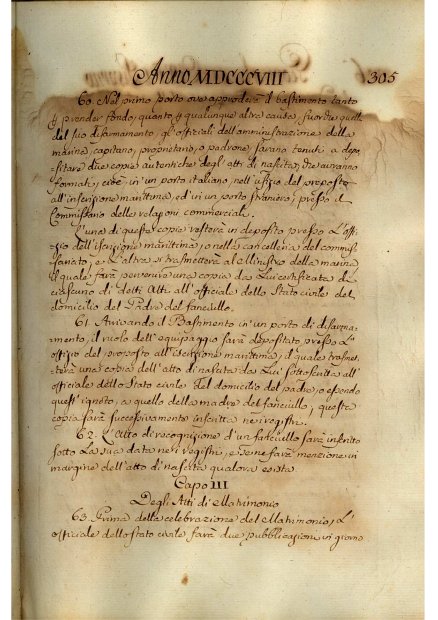 Anno MDCCCVIII 305
60. Nel primo porto ove approderà il bastimento tanto
p prender fondo, quanto p qualunque altra causa, fuorche quella
del suo disarmamento, gl'officiali dell'amministrazione della
marina, capitano, proprietario, o padrone saranno tenuti a depo-
sitare due copie autentiche degl'atti di nascita, che avranno
formati, cioè in un porto italiano, nell'ufizio del preposto
all'inscrizione marittima, ed in un porto straniero, presso il
Commissario delle relazioni commerciale.
L'una di queste copie resterà in deposito presso l'offi-
zio dell'iscrizione marittima, o nella cancelleria del commis-
sariato, e l'altra si trasmetterà al Ministro della marina
il quale farà pervenire una copia da lui certificata di
ciascuno di detti Atti all'officiale dello Stato civile del
domicilio del Padre del fanciullo.
61. Arrivando il Bastimento in un porto di disarma-
mento, il ruolo dell'equipaggio sarà depositato presso l'
offizio del preposto all'iscrizione marittima, il quale trasmet-
terà una copia dell'atto di nascita da lui sottoscritta all'
officiale dello Stato civile del domicilio del padre, o essendo
questi ignoto, a quello della madre del fanciullo, questa
copia sarà successivamente inscritta nei registri.
62. L'Atto di recognizione d'un fanciullo sarà inserito
sotto la sua data nei registri, e se ne farà menzione in
margine dell'atto di nascita qualora esista.
Capo III
Degli Atti di Matrimonio
63. Prima della celebrazione del Matrimonio, l'
officiale dello stato civile farà due pubblicazioni in giorno